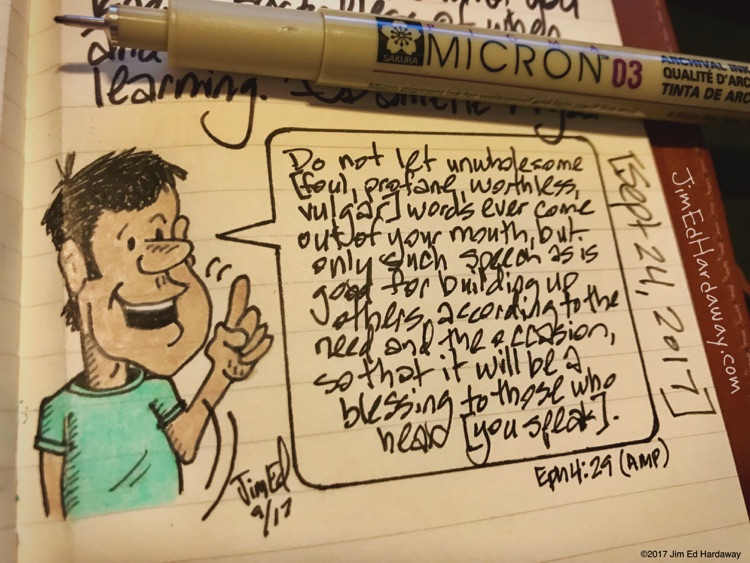 you
when
and
learning.
SAKURA
MICRON™ 03
ARCHIVAL INK
QUALITÉ D'ARC
TINTA DE ARC
Do not let unwholesome
[foul, profane, worthless,
vulgar] words ever come
out of your mouth, but
only such speech as is
good for building up
others, according to the
need and the occasion,
so that it will be a
blessing to those who
hear [you speak].
Eph 4:29 (AMP)
[Sept 24, 2017]
JimEd
9/17
JimEdHardaway.com
©2017 Jim Ed Hardaway